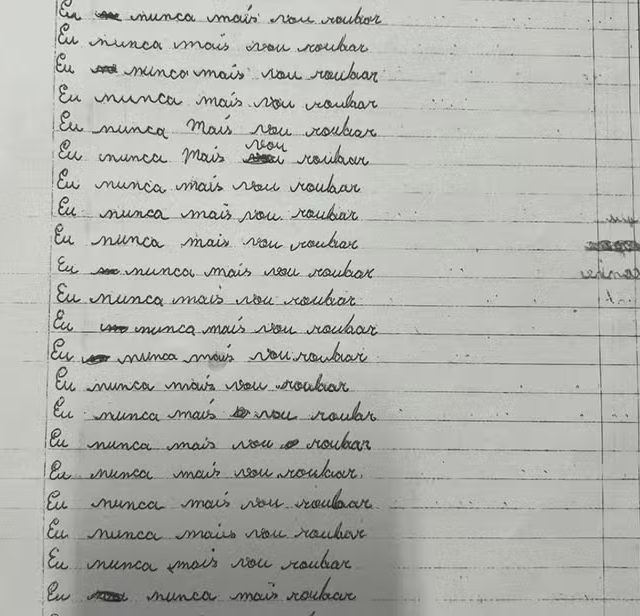 Eu nunca mais vou roubar
Eu nunca mais vou roubar
Eu nunca mais vou roubar
Eu nunca mais vou roubar
Eu nunca Mais vou roubar
Eu nunca Mais vou roubar
Eu nunca mais vou roubar
Eu nunca mais vou roubar
Eu nunca mais vou roubar
Eu nunca mais vou roubar
Eu nunca mais vou roubar
Eu nunca mais vou roubar
Eu nunca mais vou roubar
Eu nunca mais vou roubar
Eu nunca mais vou roubr
Eu nunca mais vou roubar
Eu nunca mais vou roubar.
Eu nunca mais vou roubar
Eu nunca mais vou roubar
Eu nunca mais vou roubar
Eu nunca mais roubar